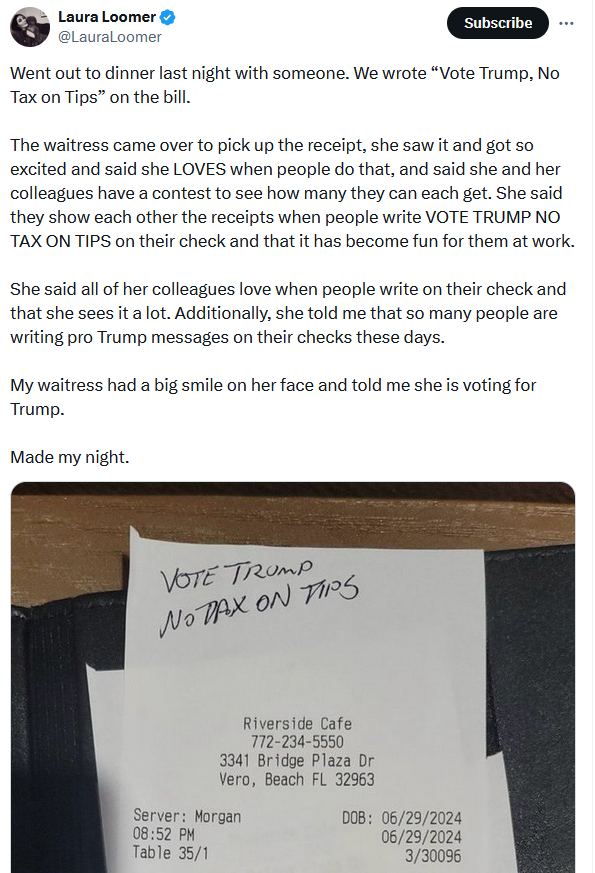 Laura Loomer
Subscribe
@LauraLoomer
Went out to dinner last night with someone. We wrote “Vote Trump, No
Tax on Tips” on the bill.
The waitress came over to pick up the receipt, she saw it and got so
excited and said she LOVES when people do that, and said she and her
colleagues have a contest to see how many they can each get. She said
they show each other the receipts when people write VOTE TRUMP NO
TAX ON TIPS on their check and that it has become fun for them at work.
She said all of her colleagues love when people write on their check and
that she sees it a lot. Additionally, she told me that so many people are
writing pro Trump messages on their checks these days.
My waitress had a big smile on her face and told me she is voting for
Trump.
Made my night.
VOTE TRUMP
NO TAX ON TIPS
Riverside Cafe
772-234-5550
3341 Bridge Plaza Dr
Vero, Beach FL 32963
Server: Morgan DOB: 06/29/2024
08:52 PM 06/29/2024
Table 35/1 3/30096